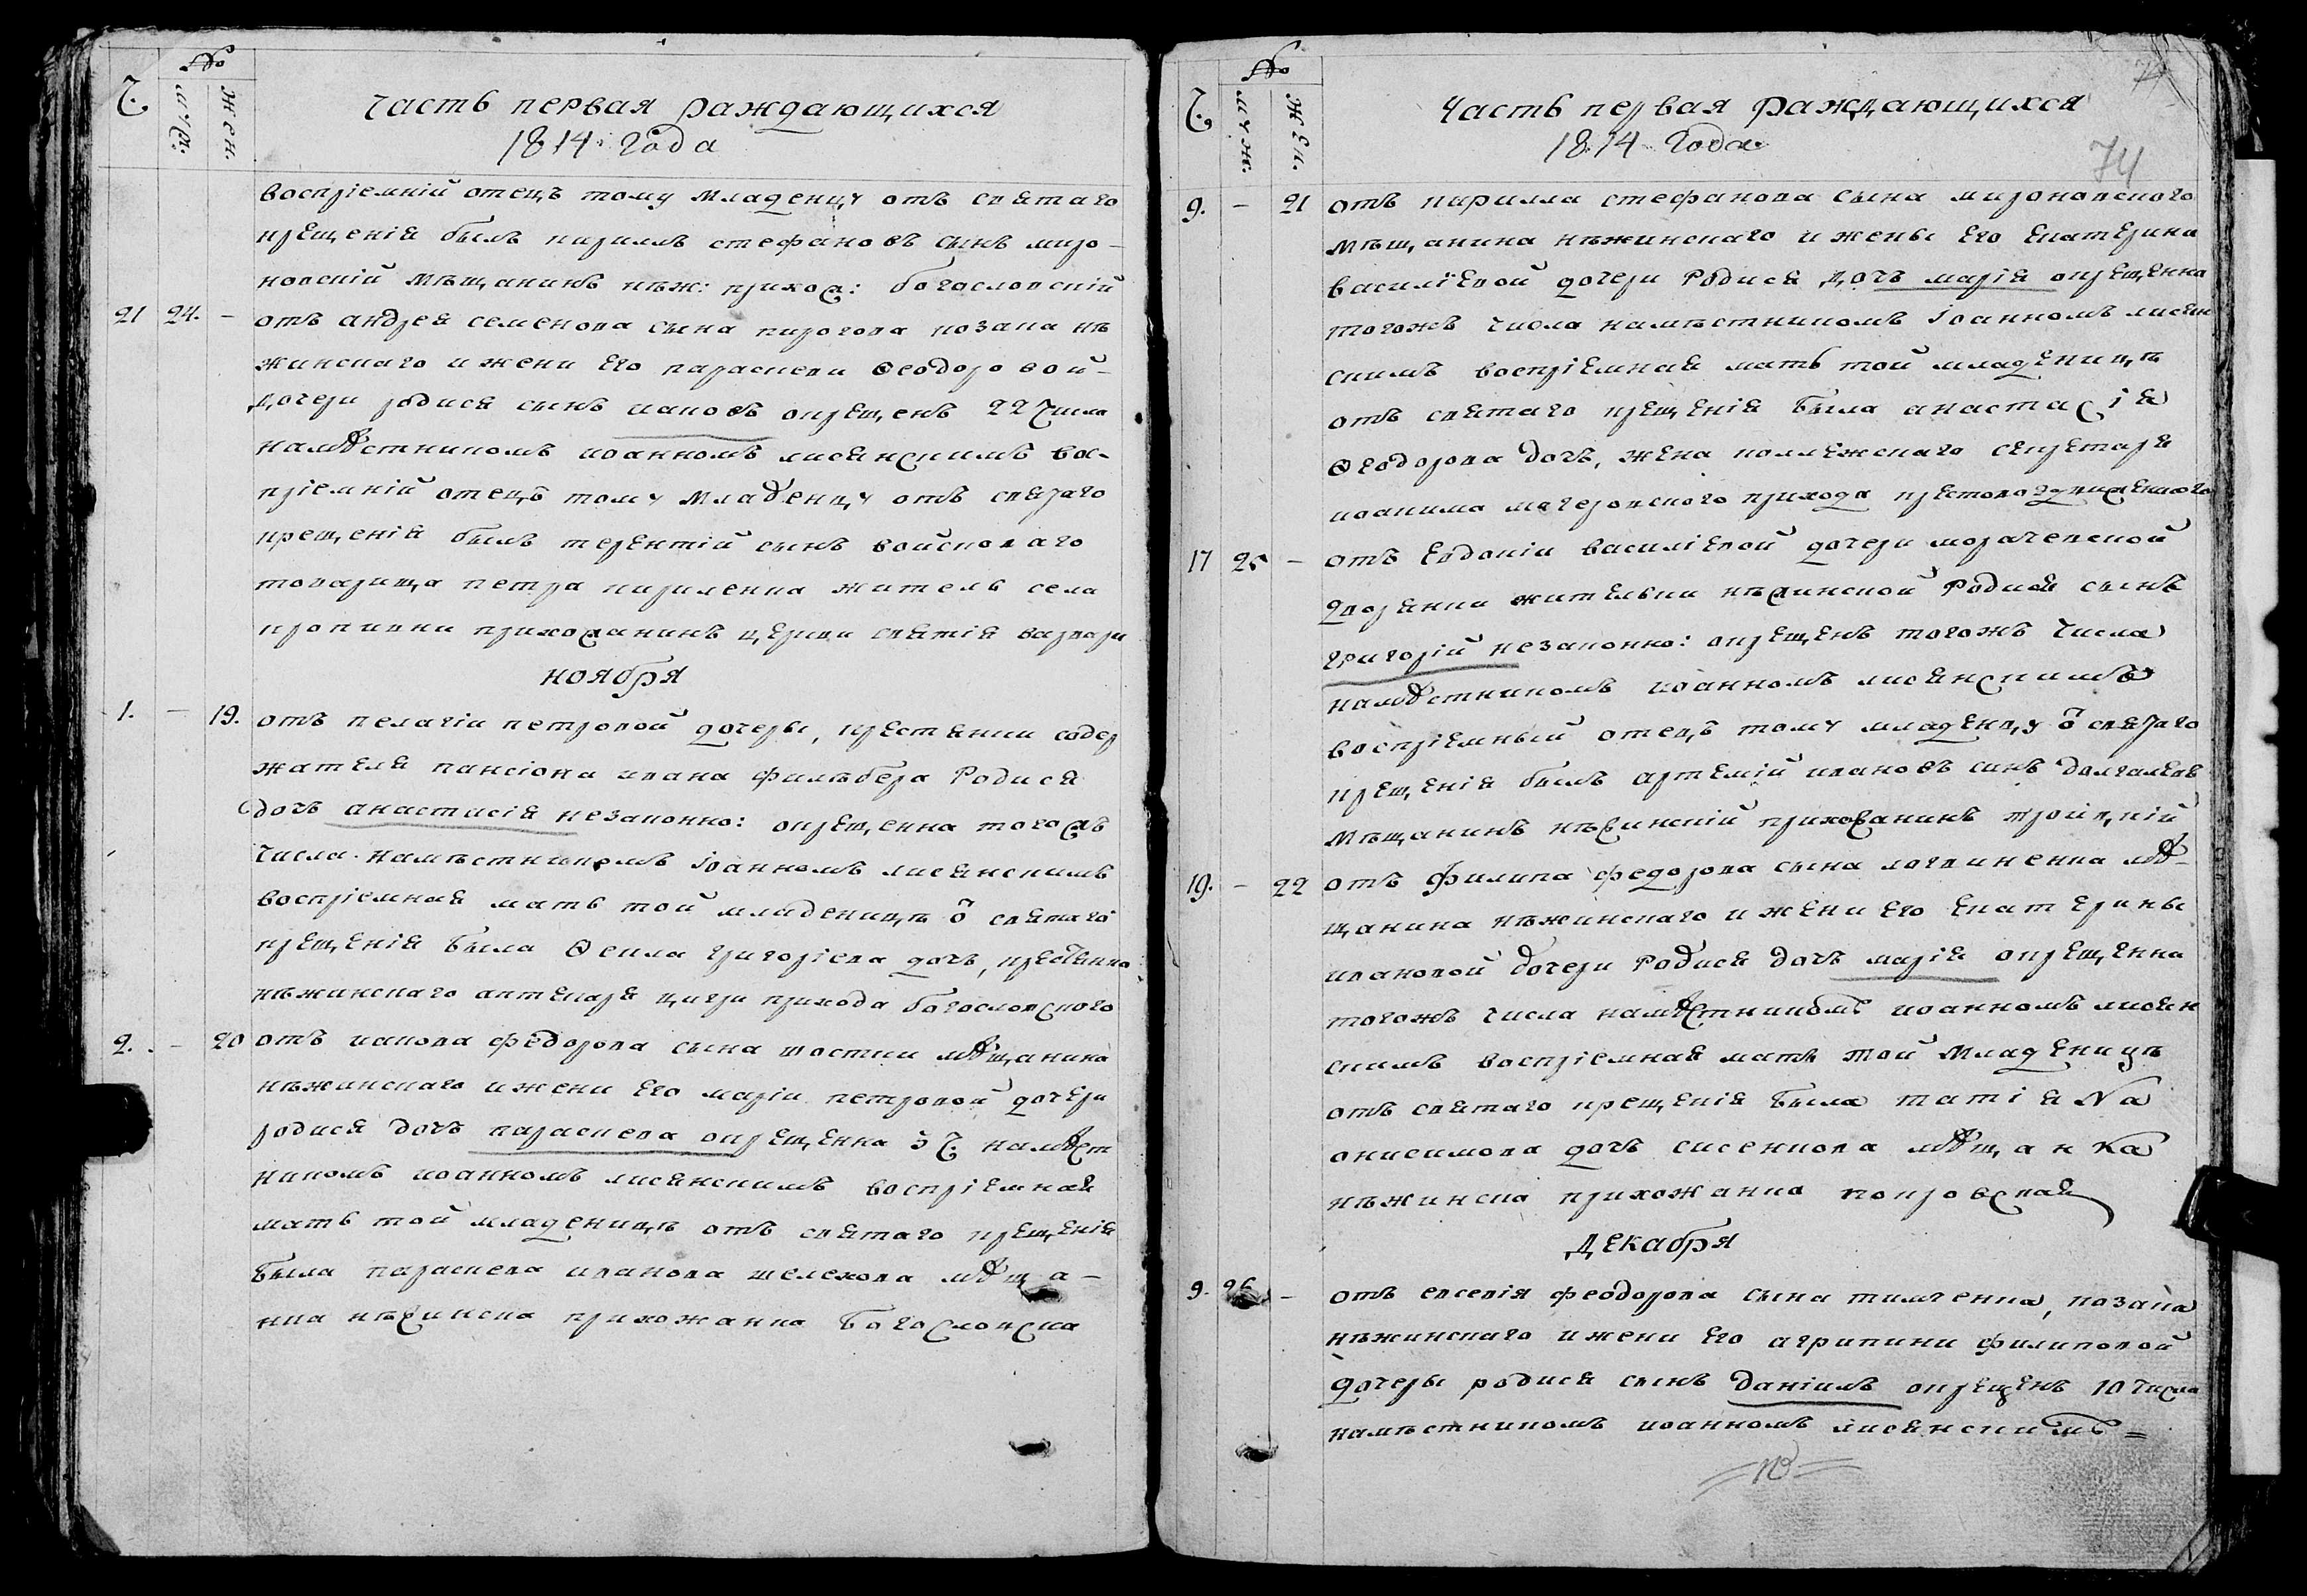 Ч.
№
муж.
жен.
часть первая раждающихся
1814 года
воспріемній отецъ тому младенцу отъ святаго
крещенія былъ кирилъ стефановъ сынъ миро-
новскій мѣщанинъ нѣж: приход: богословскій
21 24. – отъ андрея семенова сына пирогова козака нѣ
жинскаго и жени его параскеви Ѳеодоровой
дочери родися сынъ иаковъ окрещенъ 22 числа
намѣстникомъ иоанномъ лисянскимъ вос-
пріемній отецъ тому младенцу отъ святаго
крещенія былъ терентій сынъ войсковаго
товарища петра кириленка житель села
кропивни прихожанинъ церкви святія варвари
ноября
1. – 19. отъ пелагіи петровой дочеры, крестянки содер
жателя пансіона ивана филъбера родися
дочь анастасія незаконно: окрещенна тогожъ
числа намѣстникомъ іоанномъ лисянскимъ
воспріемная мать той младеницѣ ѿ святаго
крещенія была Ѳекла григоріева дочь, крестянка
нѣжинскаго аптекаря цигри прихода богословского
2. – 20 отъ иакова федорова сына шостки мѣщанина
нѣжинскаго и жени его маріи петровой дочери
родися дочь параскева окрещенна 3 ч. намѣст
никомъ иоанномъ лисянскимъ воспріемная
мать той младеницѣ отъ святаго крещенія
была параскева иванова шелехова мѣща-
нка нѣжинска прихожанка богословска
Ч.
№
муж.
жен.
74
часть первая раждающихся
1814 года
9. – 21 отъ кирилла стефанова сына мироновского
мѣщанина нѣжинскаго и жены его екатерина
василіевой дочери родися дочь марія окрещенна
тогожъ числа намѣстникомъ іоанномъ лисян
скимъ воспріемная мать той младеницѣ
отъ святаго крещенія была анастасія
Ѳеодорова дочь, жена коллежскаго секретаря
иоакима магеровского прихода крестовоздвиженского
17 25 – отъ евдокіи василіевой дочери морачевской
дворянки жительки нѣжинской родися сынъ
григорій незаконно: окрещенъ тогожъ числа
намѣстникомъ иоанномъ лисянскимъ
воспріемный отецъ тому младенцу ѿ святаго
крещенія былъ артемій ивановъ синъ далгалевъ
мѣщанинъ нѣжинскій прихожанинъ тройцкій
19. – 22 отъ филипа федорова сына логвиненка мѣ-
щанина нѣжинскаго и жени его екатерины
ивановой дочери родися дочь марія окрещенна
тогожъ числа намѣстникомъ иоанномъ лисян
скимъ воспріемная мать той младеницѣ
отъ святаго крещенія была татіяна
онисимова дочь сисенкова мѣщанка
нѣжинска прихожанка покровская
декабря
9. 26 – отъ евсевія феодорова сына тимченка, козака
нѣжинскаго и жени его агрипини филиповой
дочеры родися сынъ даніилъ окрещенъ 10 числа
намѣстникомъ иоанномъ лисянскимъ =